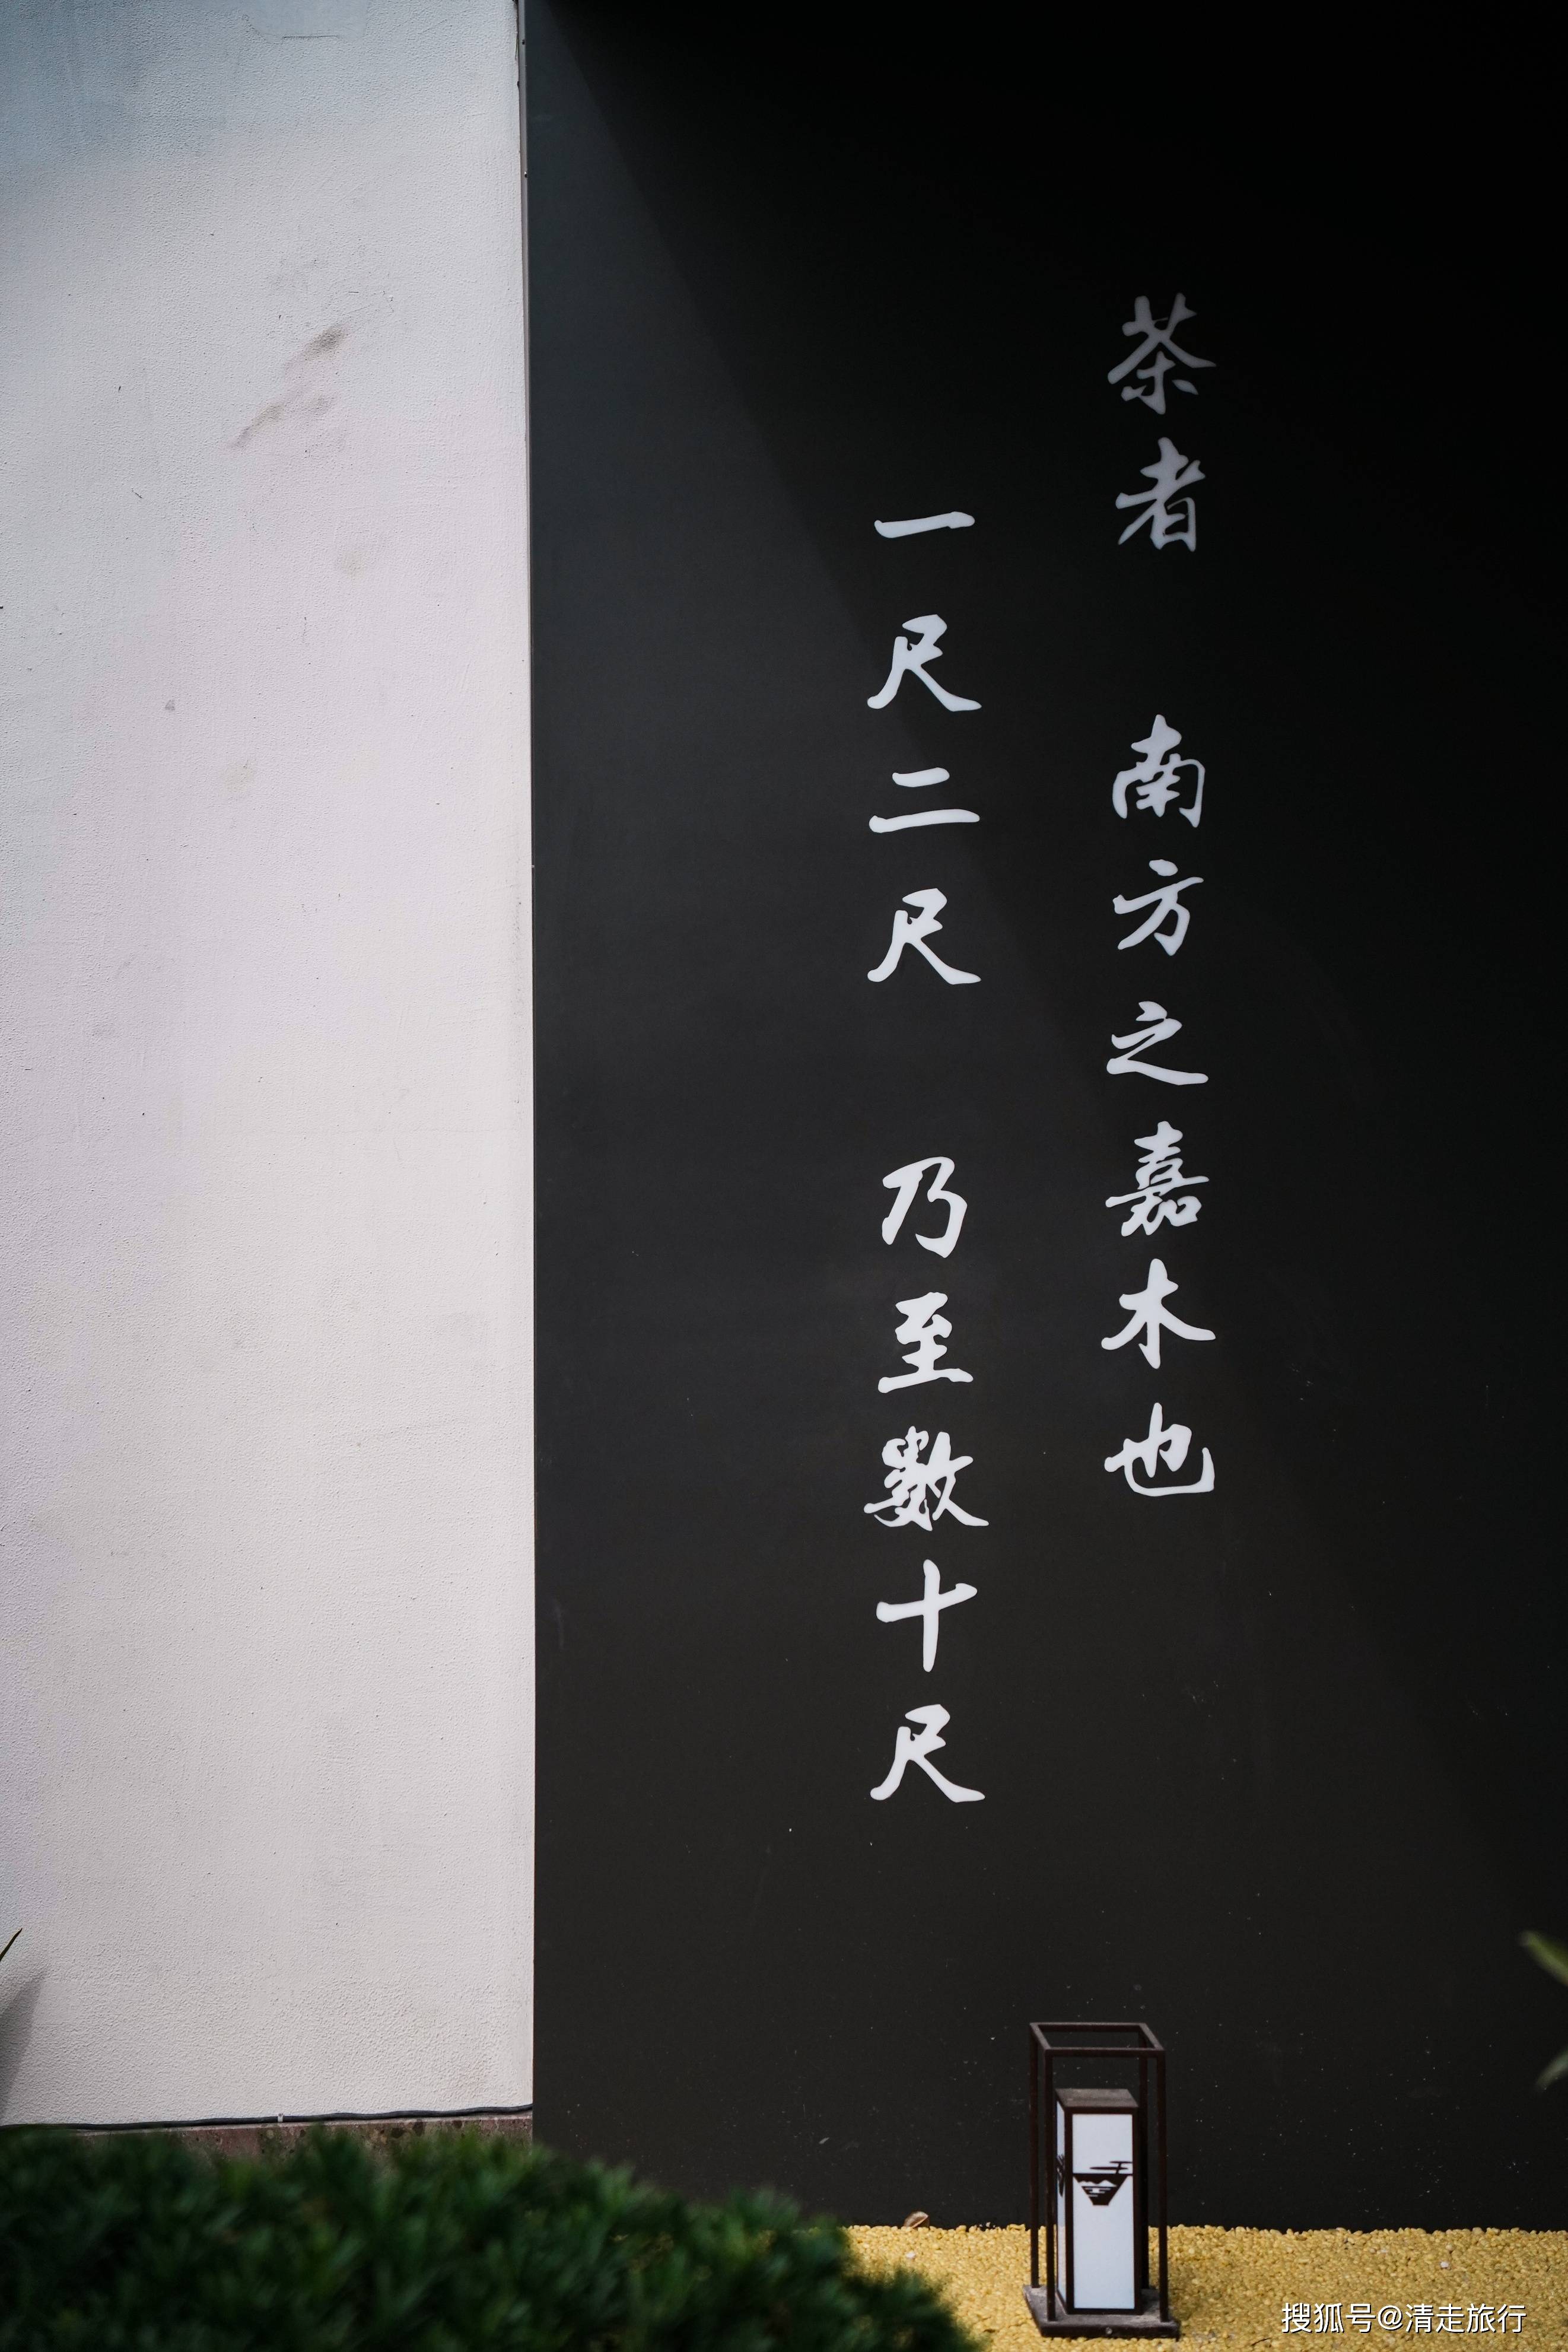 茶者 南方之嘉木也
一尺二尺 乃至數十尺
搜狐号@清走旅行